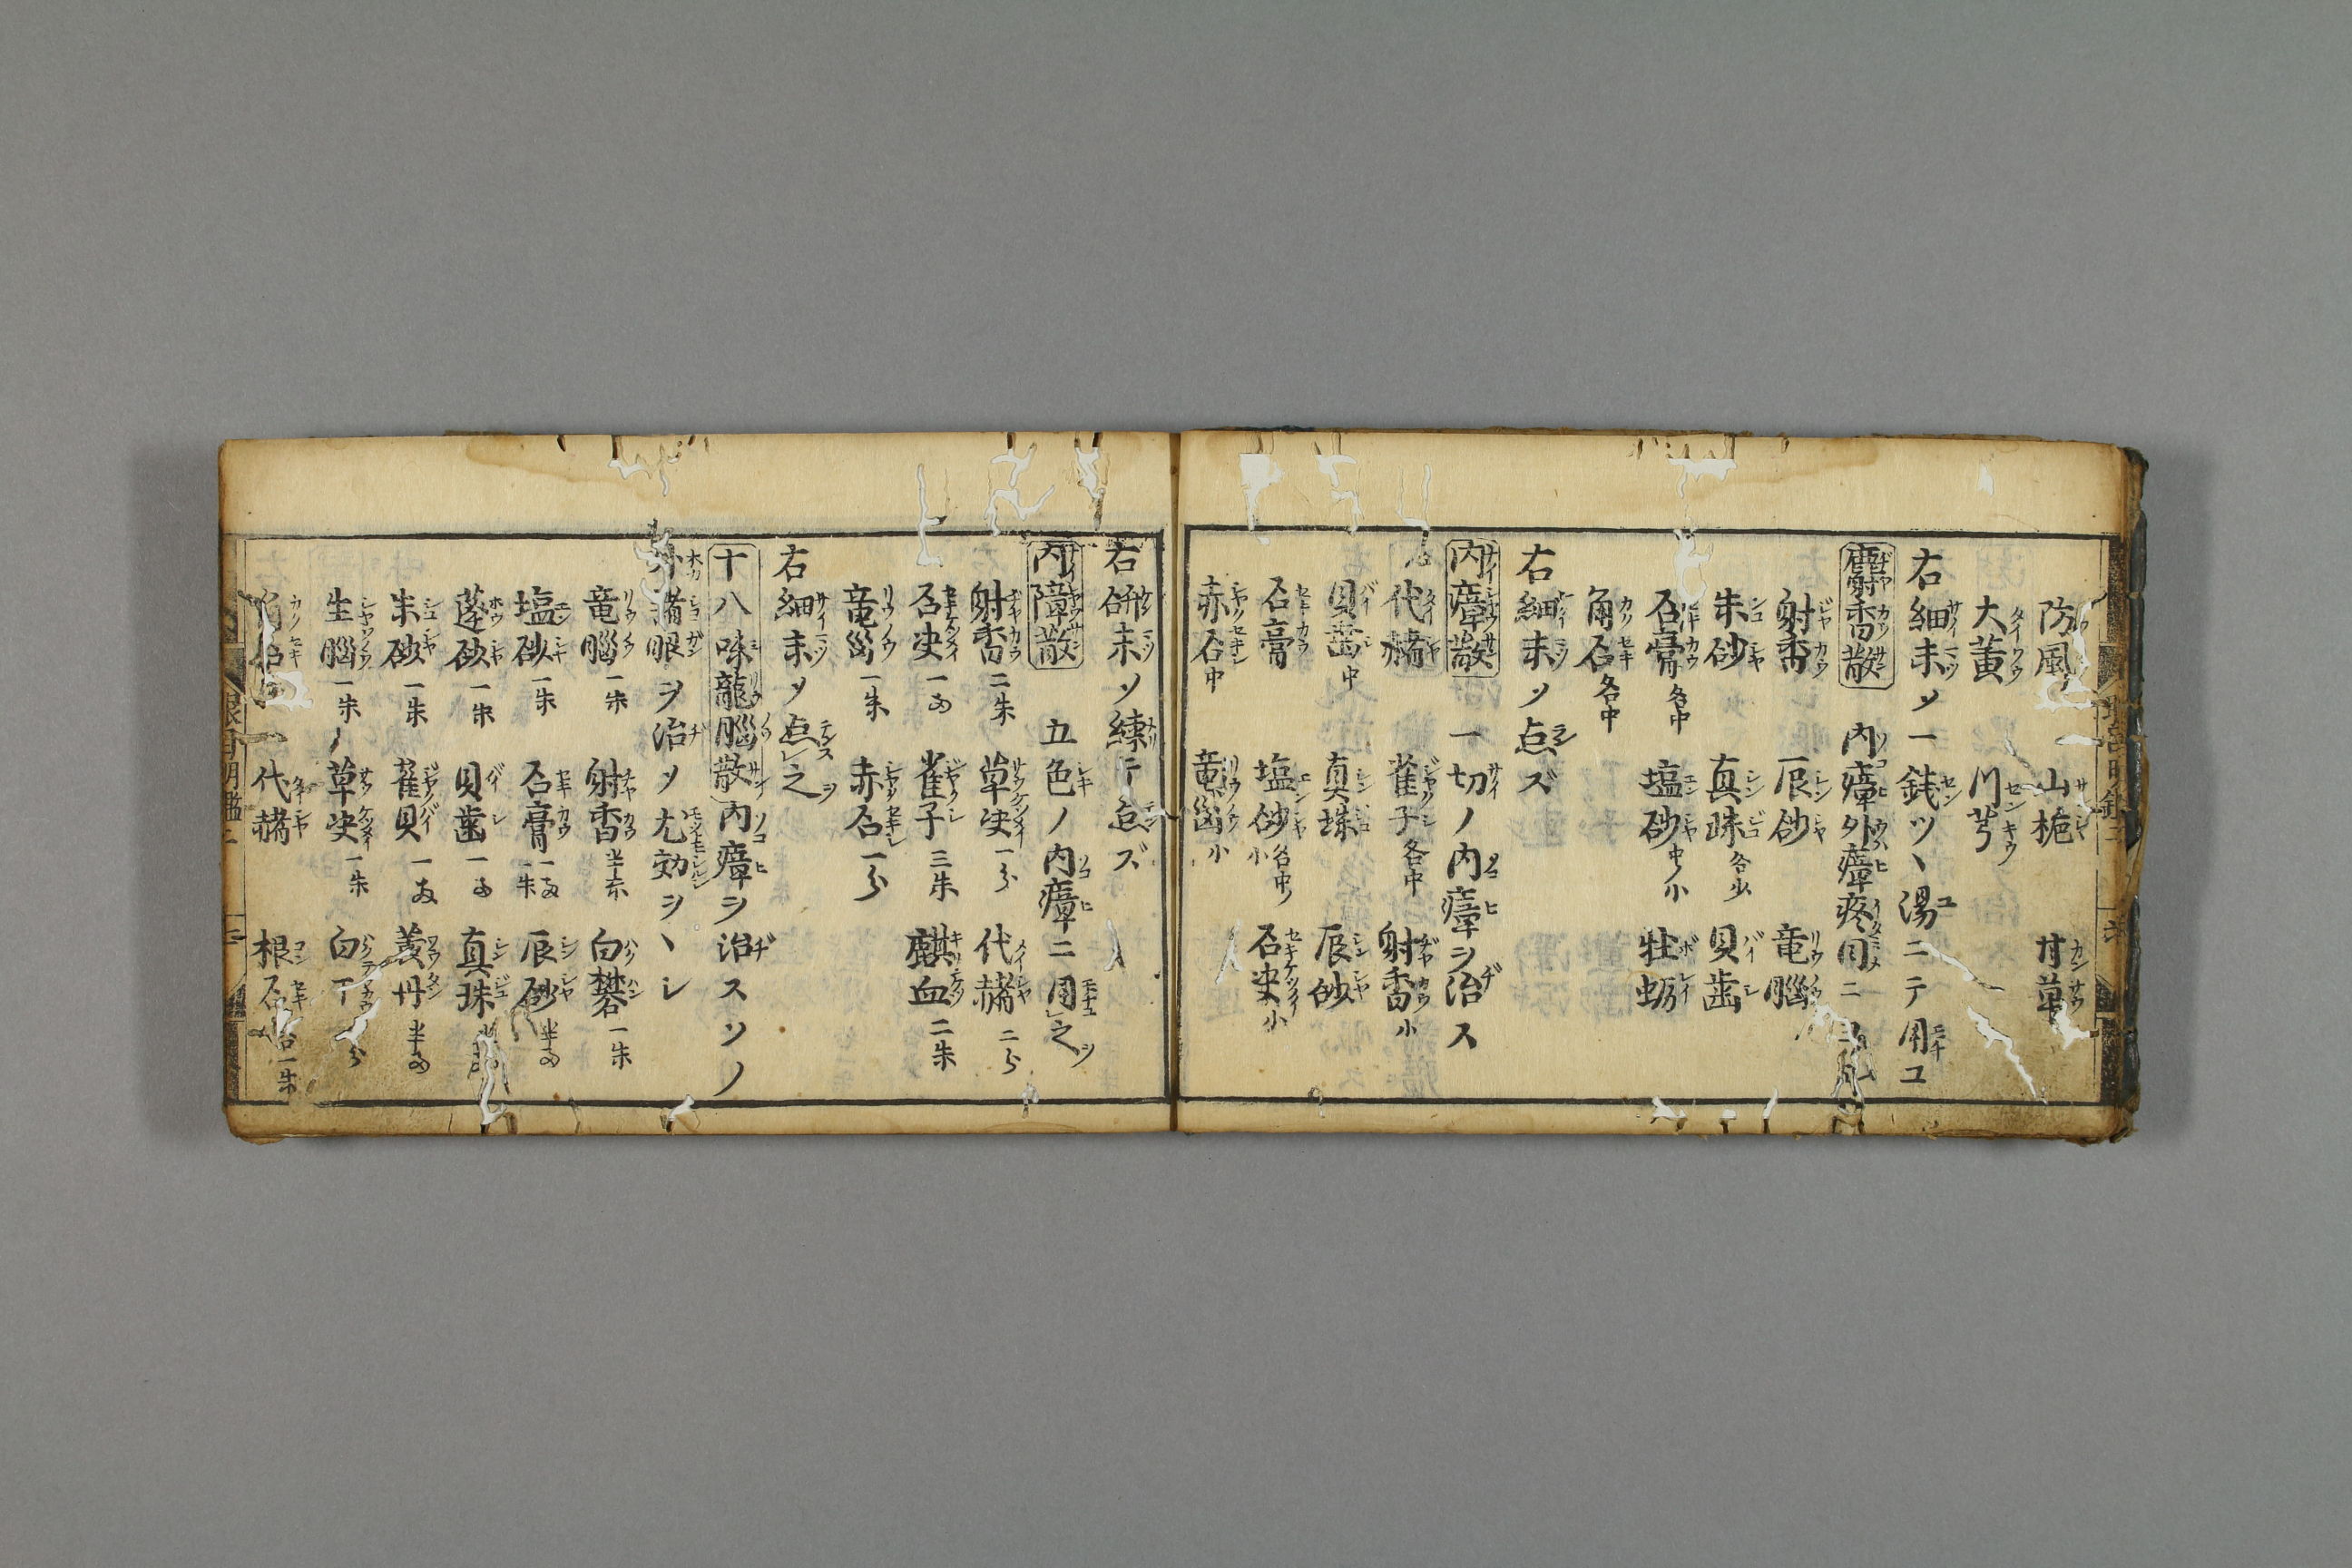 防風 山梔 甘草
大黄 川芎
右細末ソ一銭ツヽ湯ニテ用ユ
麝香散 内瘴外瘴疼目ニ
射香 辰砂 竜腦
朱砂 真珠各少 貝歯
石膏各中 塩砂中小 牡蛎
角石各中
右細末ソ点ズ
内瘴散 一切ノ内瘴ヲ治ス
代赭 雀子各中 射香小
貝歯中 真珠 辰砂
石膏 塩砂各中小 石决小
赤石中 竜𦛁小
右研末ソ練テ点ズ
内障散 五色ノ内瘴ニ用之
射香二朱 草决一分 代赭二分
石决一両 雀子三朱 麒血二朱
竜𦛁一朱 赤石一分
右細末ソ点之
十八味龍腦散 内瘴ヲ治スソノ
外諸眼ヲ治ソ尤効ヲヽシ
竜腦一朱 射香半朱 白礬一朱
塩砂一朱 石膏一両一朱 辰砂半両
蓬砂一朱 貝歯一両 真珠
朱砂一朱 雀貝一両 黄丹半両
生腦一朱 草决一朱 白丁
角石 代赭 根石各一朱
眼目明鑑二